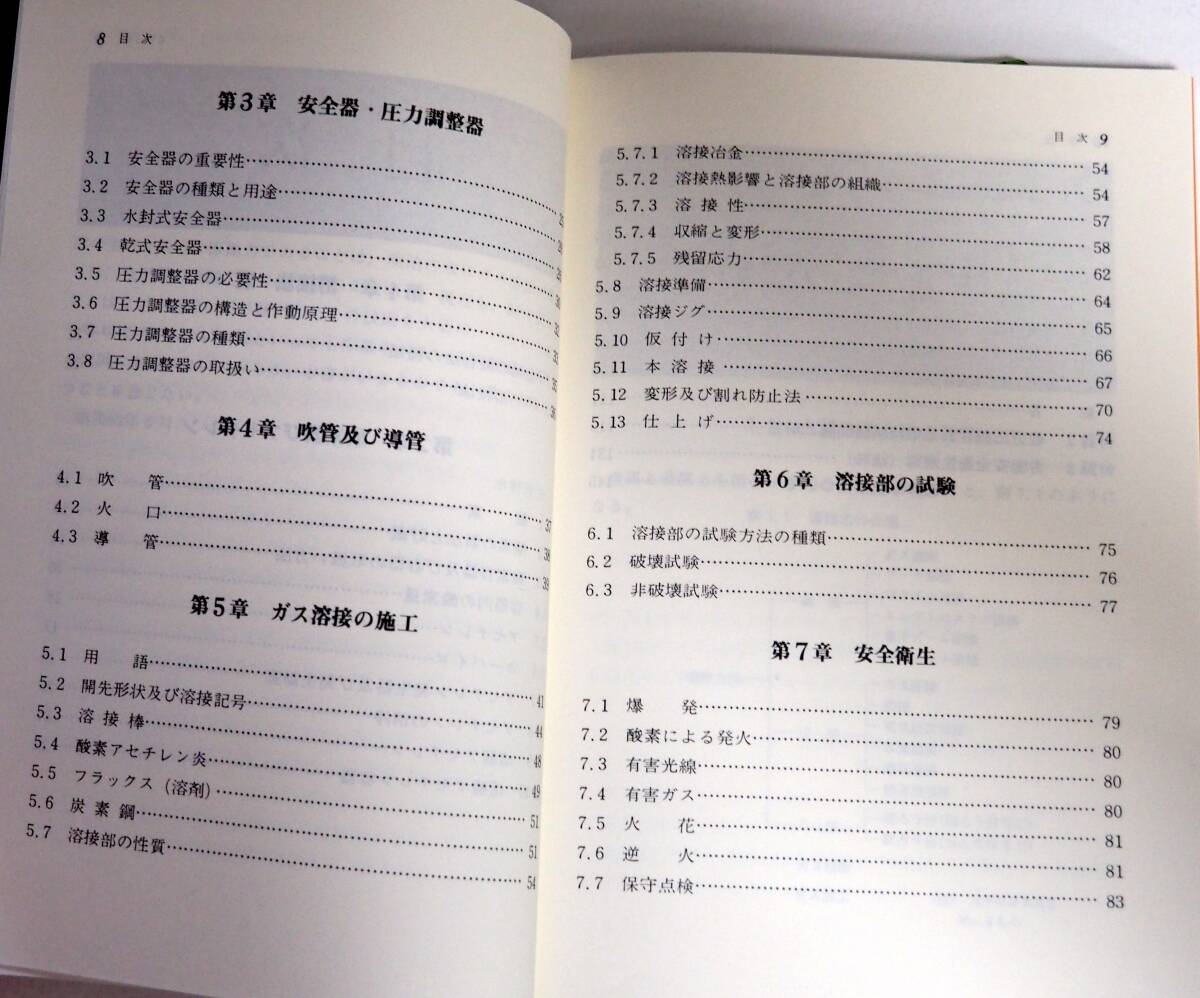 8 目 次
第3章 安全器・圧力調整器
3.1 安全器の重要性
3.2 安全器の種類と用途
3.3 水封式安全器
3.4 乾式安全器
3.5 圧力調整器の必要性
3.6 圧力調整器の構造と作動原理
3.7 圧力調整器の種類
3.8 圧力調整器の取扱い
第4章 吹管及び導管
4.1 吹 管 37
4.2 火 口 38
4.3 導 管 39
第5章 ガス溶接の施工
5.1 用 語 41
5.2 開先形状及び溶接記号 44
5.3 溶 接 棒 48
5.4 酸素アセチレン炎 49
5.5 フラックス(溶剤) 51
5.6 炭 素 鋼 51
5.7 溶接部の性質 54
目 次 9
5.7.1 溶接冶金 54
5.7.2 溶接熱影響と溶接部の組織 54
5.7.3 溶 接 性 57
5.7.4 収縮と変形 58
5.7.5 残留応力 62
5.8 溶接準備 64
5.9 溶接ジグ 65
5.10 仮 付 け 66
5.11 本 溶 接 67
5.12 変形及び割れ防止法 70
5.13 仕 上 げ 74
第6章 溶接部の試験
6.1 溶接部の試験方法の種類 75
6.2 破壊試験 76
6.3 非破壊試験 77
第7章 安全衛生
7.1 爆 発 79
7.2 酸素による発火 80
7.3 有害光線 80
7.4 有害ガス 80
7.5 火 花 81
7.6 逆 火 81
7.7 保守点検 83